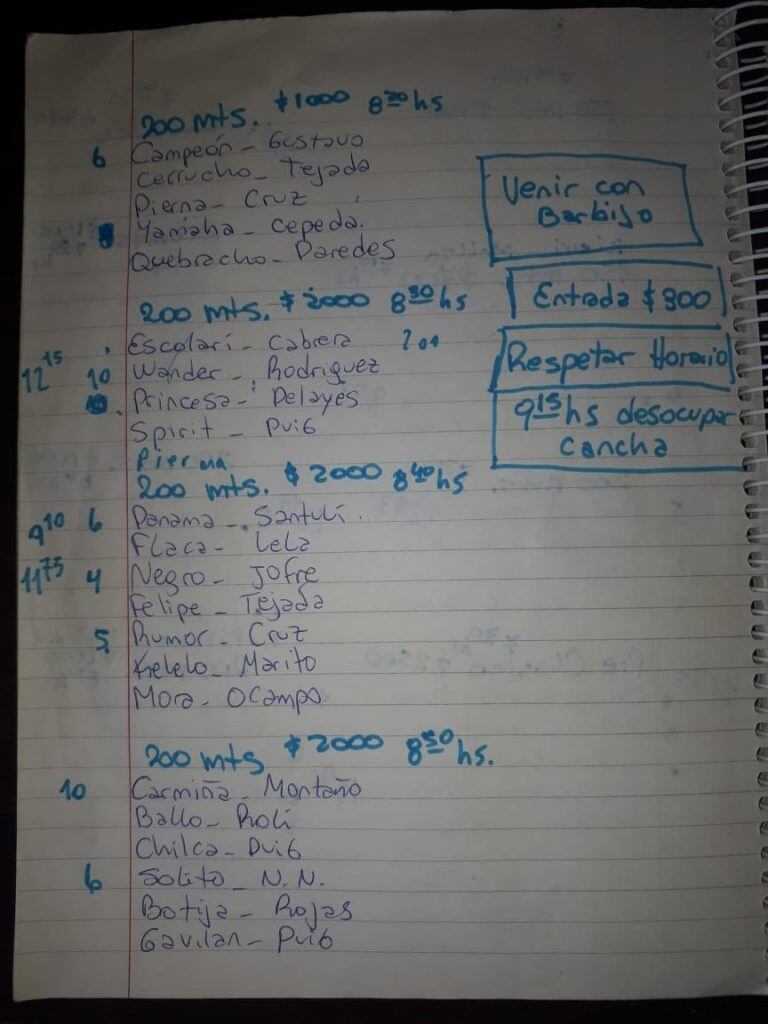 200 mts. $1000 8 20 hs
6 Campeón - Gustavo
Cerrucho - Tejada
Pierna - Cruz
Yamaha - Cepeda.
Quebracho - Paredes
Venir con
Barbijo
200 mts. $2000 8 30 hs
Entrada $300
Escolari - Cabrera 200
12 15 10 Wander - Rodriguez
Respetar Horario
Princesa - Pelayes
Spirit - Puig
9 15 hs desocupar
cancha
Pierna
200 mts. $2000 8 40 hs
9 10 6 Panama - Santuli
Flaca - Lela
11 75 4 Negro - Jofre
Felipe - Tejada
5 Rumor - Cruz
Kelelo - Marito
Mora - Ocampo
200 mts $2000 8 50 hs.
10 Carmiña - Montaño
Ballo - Roli
Chilca - Puig
6 Solito - N.N.
Botija - Rojas
Gavilan - Puig